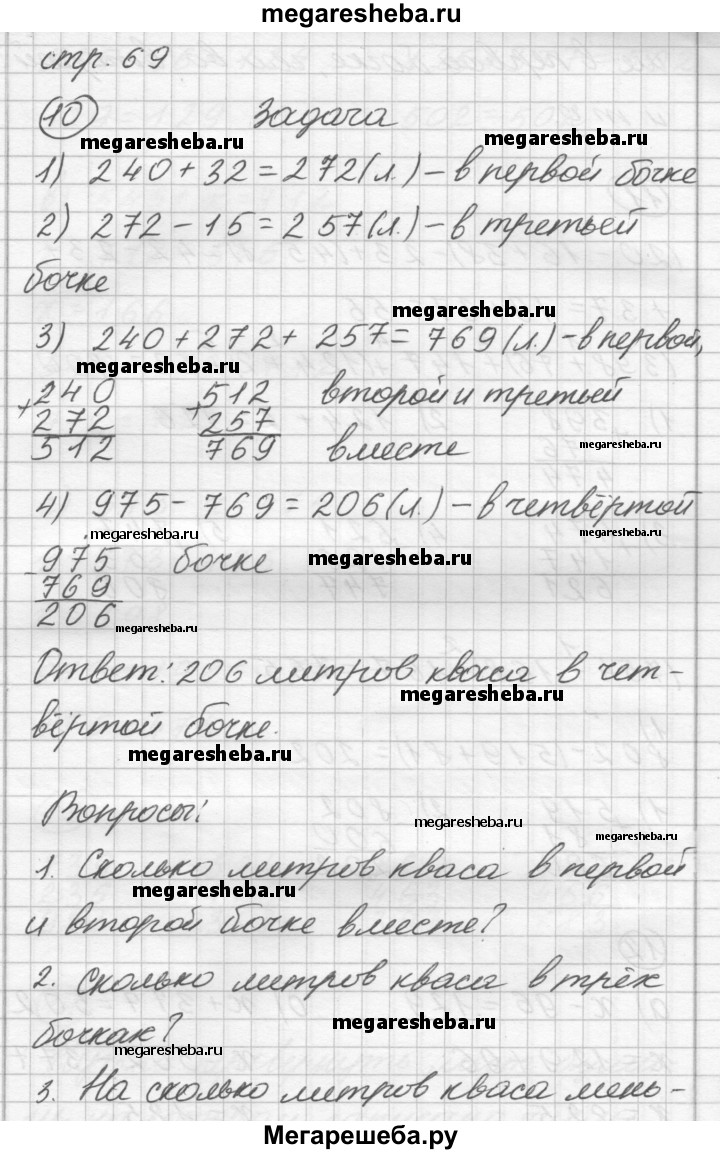 megaresheba.ru
стр. 69
10 Задача
megaresheba.ru megaresheba.ru
1) 240 + 32 = 272 (л.) – в первой бочке
2) 272 – 15 = 257 (л.) – в третьей
бочке
megaresheba.ru
3) 240 + 272 + 257 = 769 (л.) – в первой,
megaresheba.ru
+240 +512 второй и третьей
272 257 megaresheba.ru
512 769 вместе
4) 975 – 769 = 206 (л.) – в четвёртой
megaresheba.ru
-975 бочке megaresheba.ru
769
206 megaresheba.ru
Ответ: 206 литров кваса в чет-
megaresheba.ru
вёртой бочке.
megaresheba.ru
Вопросы:
megaresheba.ru
megaresheba.ru
1. Сколько литров кваса в первой
megaresheba.ru
и второй бочке вместе?
2. Сколько литров кваса в трёх
бочках?
megaresheba.ru
megaresheba.ru
3. На сколько литров кваса мень-
Мегарешеба.ру